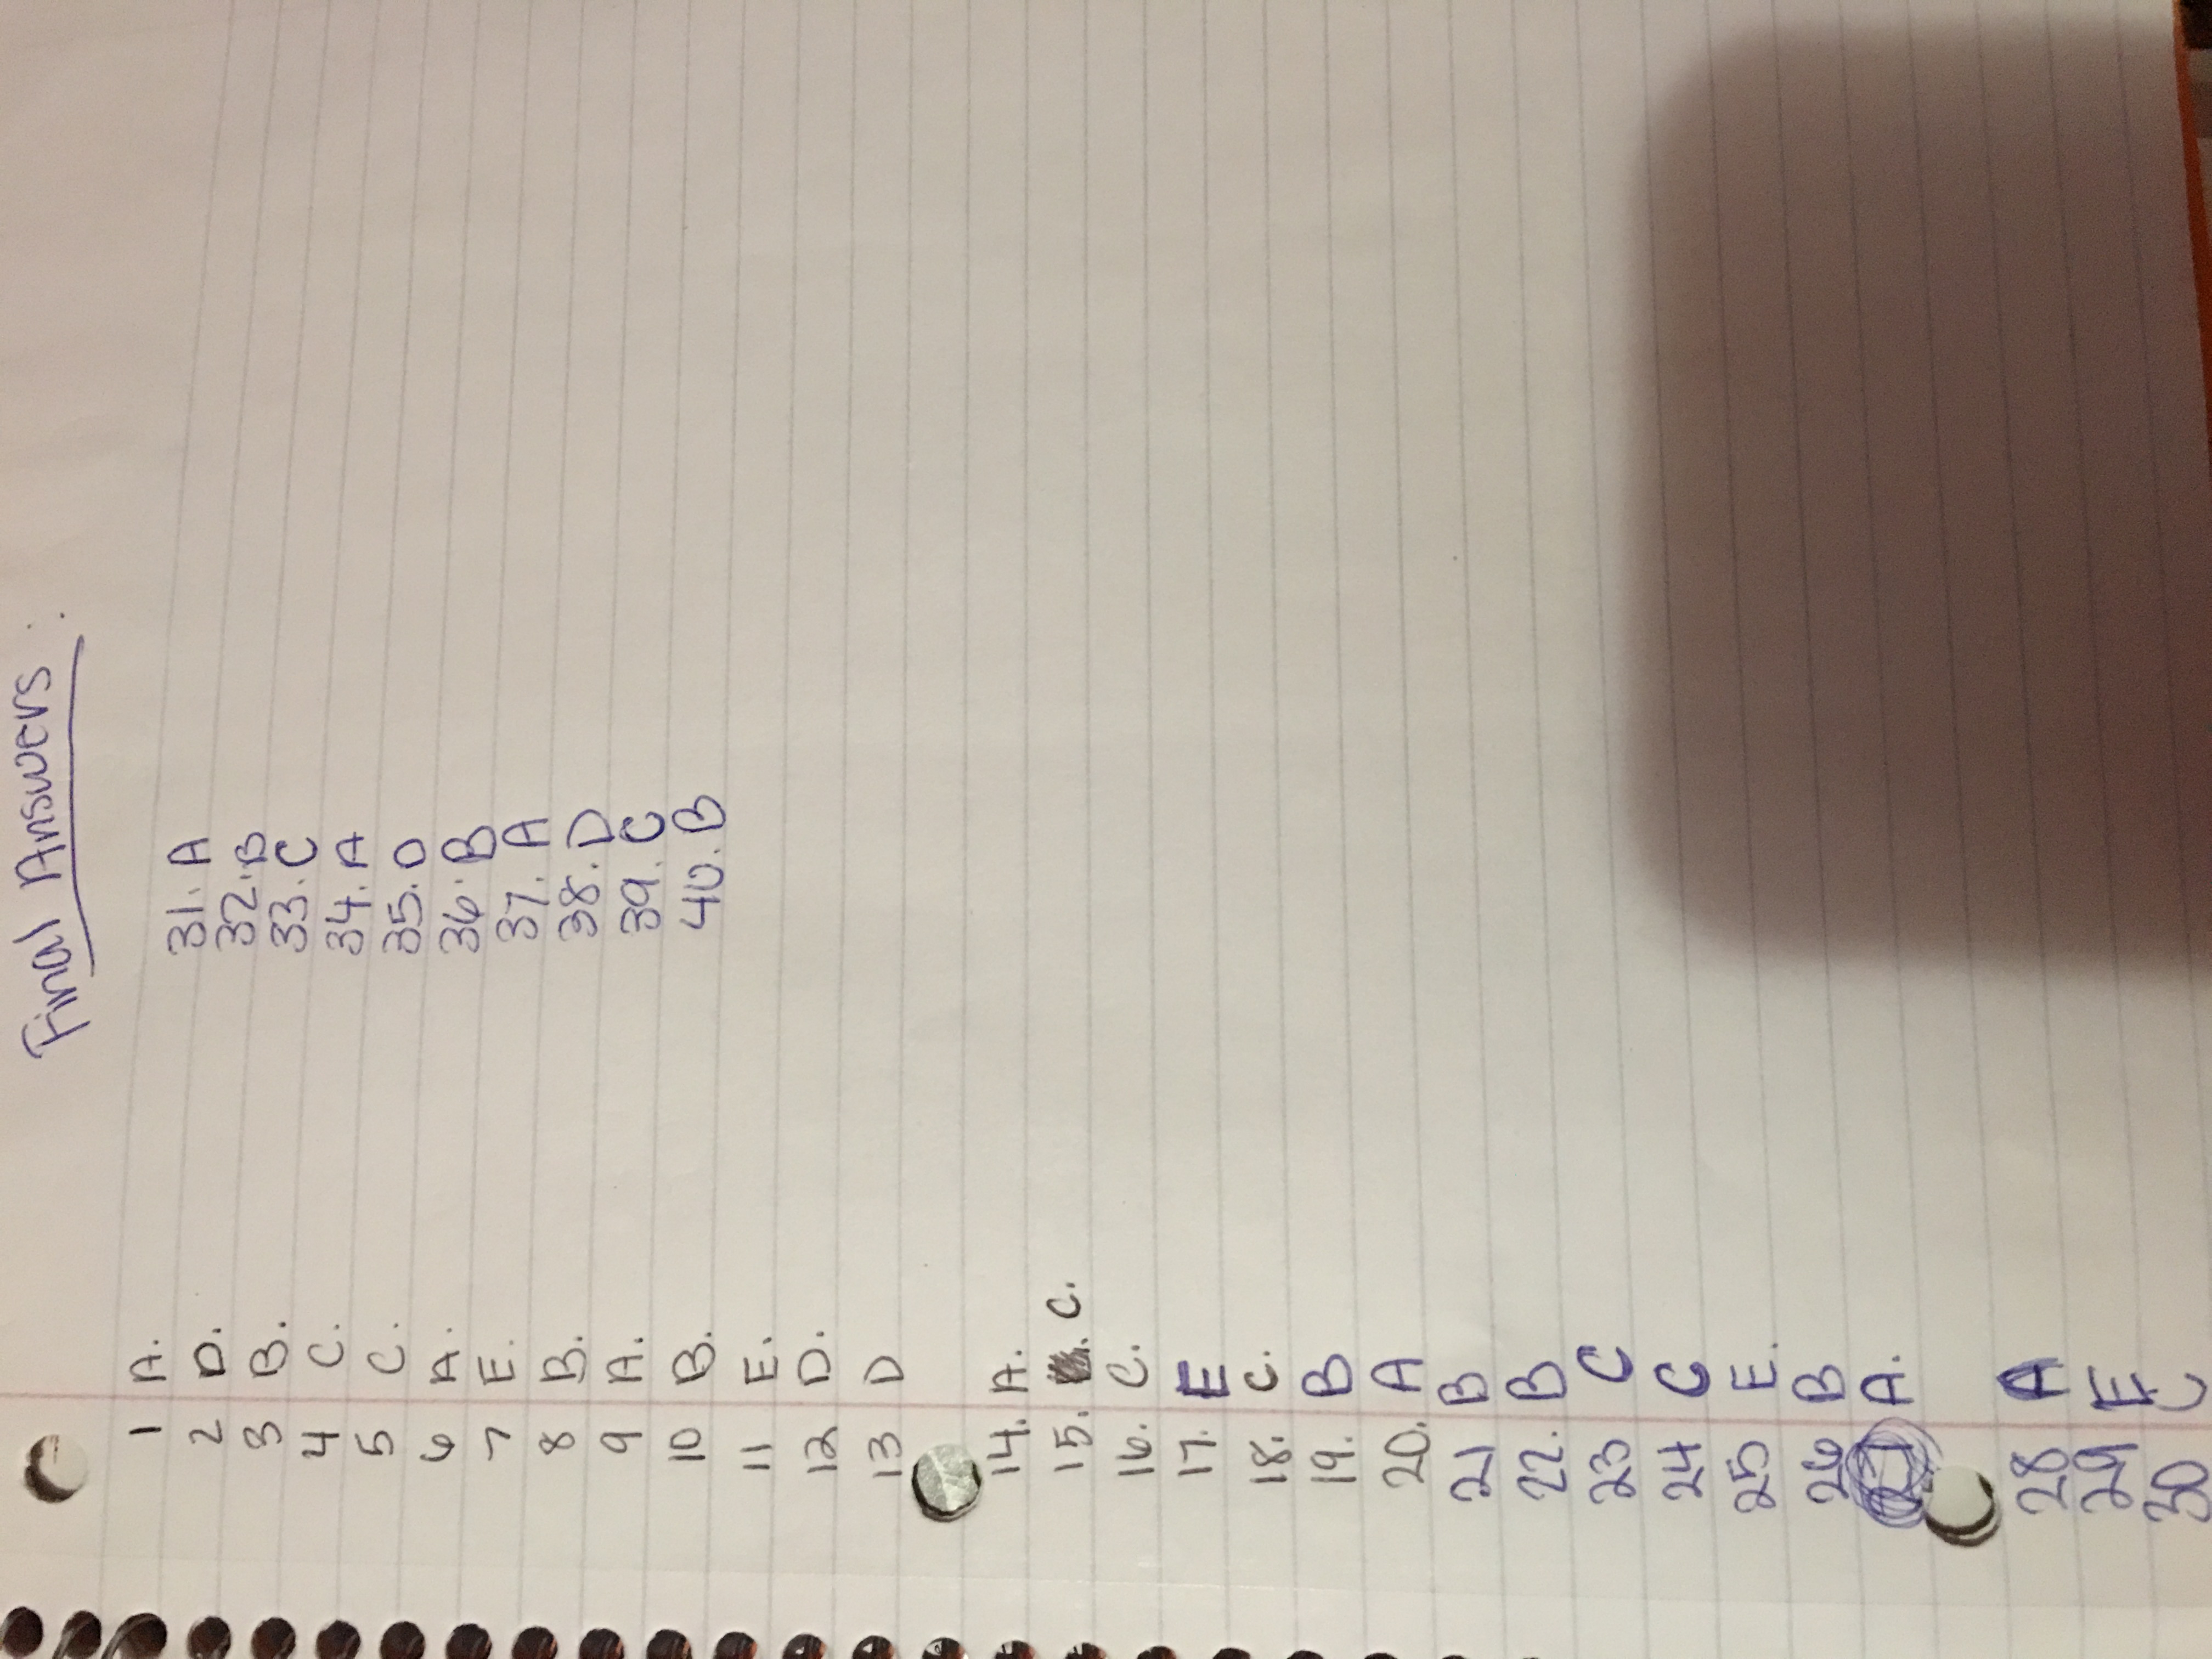 Final Answers:
1 A.
2 D.
3 B.
4 C.
5 C.
6 A.
7 E.
8 B.
9 A.
10 B.
11 E.
12 D.
13 D
14. A.
15. C.
16. C.
17. E
18. C.
19. B
20. A
21 B
22. B
23 C
24 C
25 E.
26 B
A.
28 A
29 E
30 C
31. A
32. B
33. C
34. A
35. D
36. B
37. A
38. D
39. C
40. B